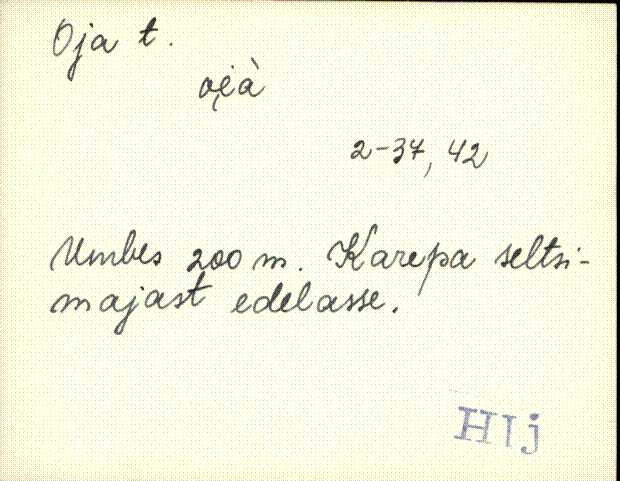 Oja t.
oi̯à
2-37, 42
Umbes 200 m. Karepa seltsi-
majast edelasse.
HIj